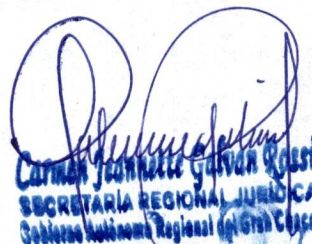 Carmen Jeannette Galvan Rossi
SECRETARÍA REGIONAL JURÍDICA
Gobierno Autónomo Regional del Gran Chaco